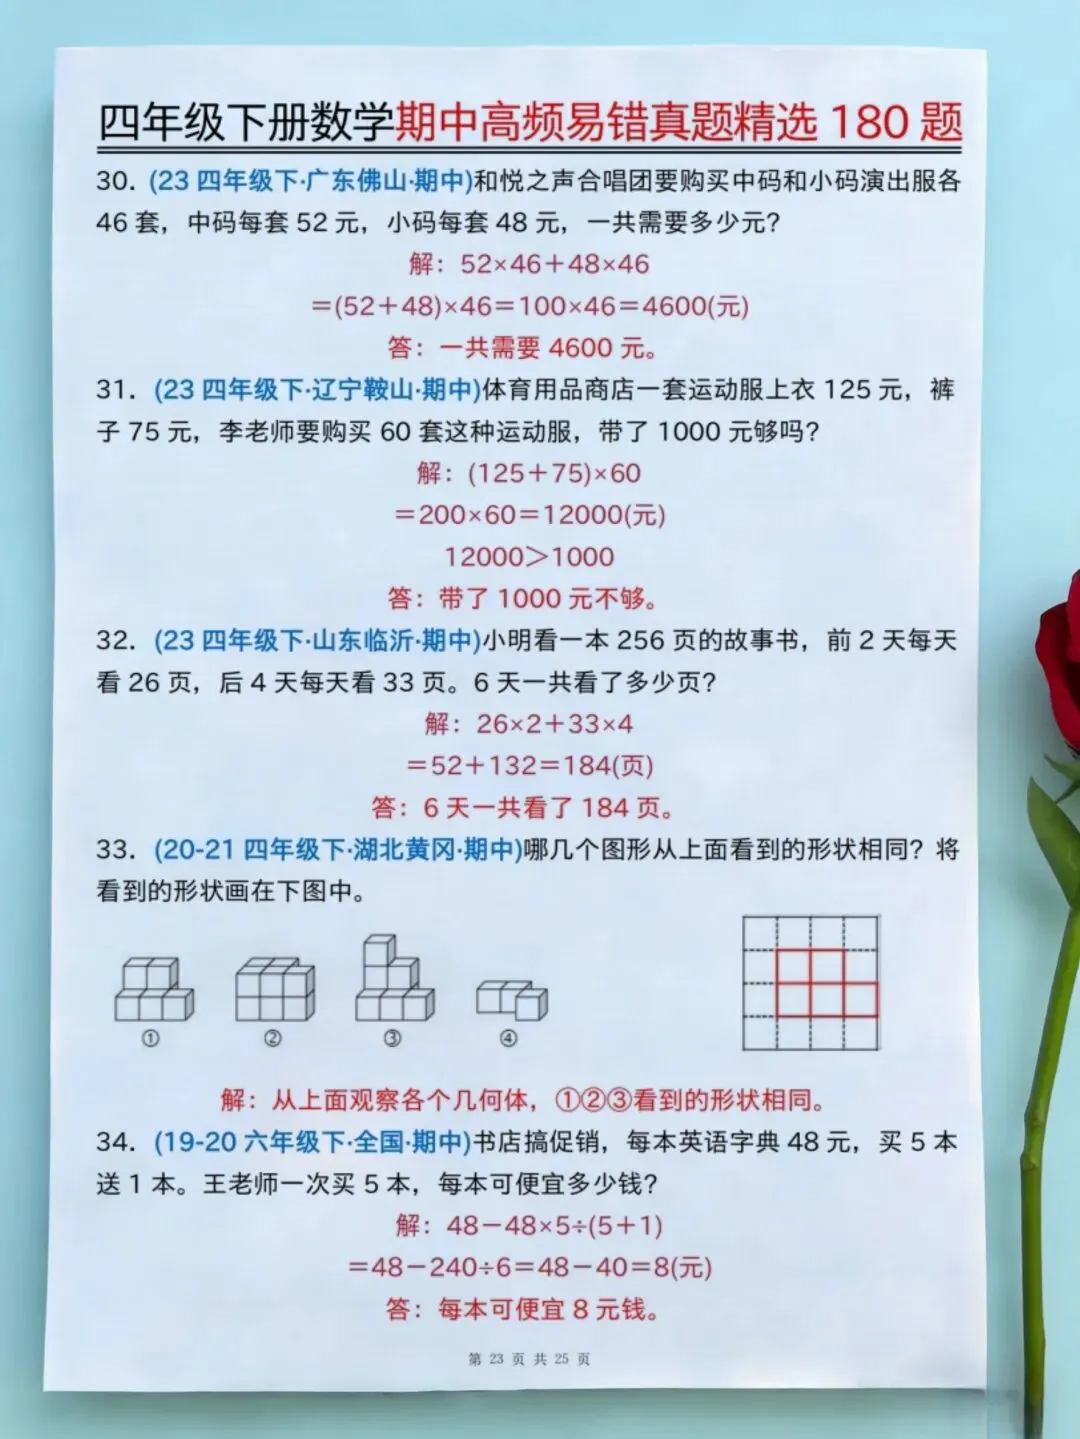 四年级下册数学期中高频易错真题精选 180 题
30. (23 四年级下·广东佛山·期中)和悦之声合唱团要购买中码和小码演出服各
46 套，中码每套 52 元，小码每套 48 元，一共需要多少元？
解：52×46＋48×46
＝(52＋48)×46＝100×46＝4600(元)
答：一共需要 4600 元。
31. (23 四年级下·辽宁鞍山·期中)体育用品商店一套运动服上衣 125 元，裤
子 75 元，李老师要购买 60 套这种运动服，带了 1000 元够吗？
解：(125＋75)×60
＝200×60＝12000(元)
12000＞1000
答：带了 1000 元不够。
32. (23 四年级下·山东临沂·期中)小明看一本 256 页的故事书，前 2 天每天
看 26 页，后 4 天每天看 33 页。6 天一共看了多少页？
解：26×2＋33×4
＝52＋132＝184(页)
答：6 天一共看了 184 页。
33. (20-21 四年级下·湖北黄冈·期中)哪几个图形从上面看到的形状相同？将
看到的形状画在下图中。
① ② ③ ④
解：从上面观察各个几何体，①②③看到的形状相同。
34. (19-20 六年级下·全国·期中)书店搞促销，每本英语字典 48 元，买 5 本
送 1 本。王老师一次买 5 本，每本可便宜多少钱？
解：48－48×5÷(5＋1)
＝48－240÷6＝48－40＝8(元)
答：每本可便宜 8 元钱。
第 23 页 共 25 页